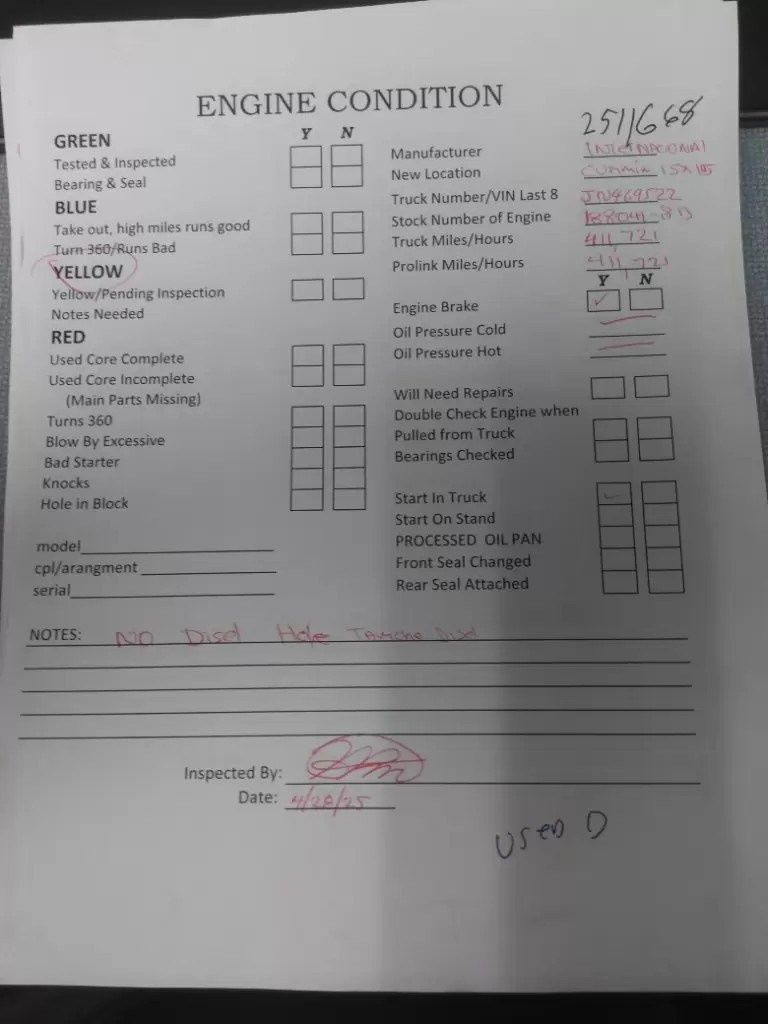 ENGINE CONDITION
2511668
GREEN
Y N
Tested & Inspected
Bearing & Seal
BLUE
Take out, high miles runs good
Turn 360/Runs Bad
YELLOW
Yellow/Pending Inspection
Notes Needed
RED
Used Core Complete
Used Core Incomplete
(Main Parts Missing)
Turns 360
Blow By Excessive
Bad Starter
Knocks
Hole in Block
model
cpl/arangment
serial
Manufacturer
New Location
Truck Number/VIN Last 8 JN469522
Stock Number of Engine
Truck Miles/Hours 411,721
Prolink Miles/Hours 411,721
Y N
Engine Brake ✓
Oil Pressure Cold
Oil Pressure Hot
Will Need Repairs
Double Check Engine when
Pulled from Truck
Bearings Checked
Start In Truck ✓
Start On Stand
PROCESSED OIL PAN
Front Seal Changed
Rear Seal Attached
NOTES: NO
Inspected By:
Date: 4/28/25
USED D